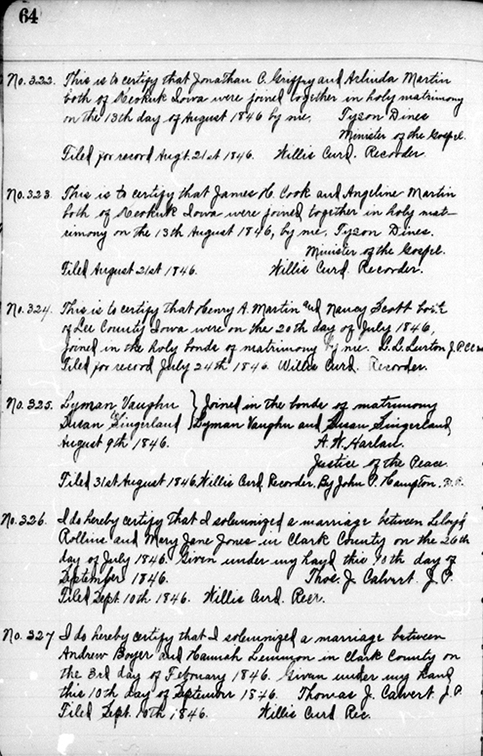 64
No. 322. This is to certify that Jonathan C. Griffey and Arlinda Martin
both of Keokuk Iowa were joined together in holy matrimony
on the 13th day of August 1846 by me. Tyson Dines
Minister of the Gospel.
Filed for record Augt. 21st 1846. Willis Curd. Recorder.
No. 323. This is to certify that James H. Cook and Angeline Martin
both of Keokuk Iowa were joined together in holy mat-
rimony on the 13th August 1846, by me. Tyson Dines.
Minister of the Gospel.
Filed August 21st 1846. Willis Curd. Recorder.
No. 324. This is to certify that Henry A. Martin and Nancy Scott both
of Lee County Iowa were on the 20th day of July 1846,
joined in the holy bonds of matrimony by me. L. L. Lurton J. P.
Filed for record July 24th 1846 Willis Curd. Recorder.
No. 325. Lyman Vaughn } Joined in the bonds of matrimony
Susan Singerland } Lyman Vaughn and Susan Singerland
August 9th 1846. A. W. Harlan.
Justice of the Peace.
Filed 31st August 1846. Willis Curd Recorder. By John P. Hampton. D. R.
No. 326. I do hereby certify that I solemnized a marriage between
Rollins and Mary Jane Jones in Clark County on the 26th
day of July 1846. Given under my hand this 10th day of
September 1846. Thos. J. Calvert J. P.
Filed Sept. 10th 1846. Willis Curd. Recr.
No. 327 I do hereby certify that I solemnized a marriage between
Andrew Boyer and Hannah Lemmon in Clark County on
the 3rd day of February 1846. Given under my hand
this 10th day of September 1846. Thomas J. Calvert J. P.
Filed Sept. 10th 1846. Willis Curd Rec.